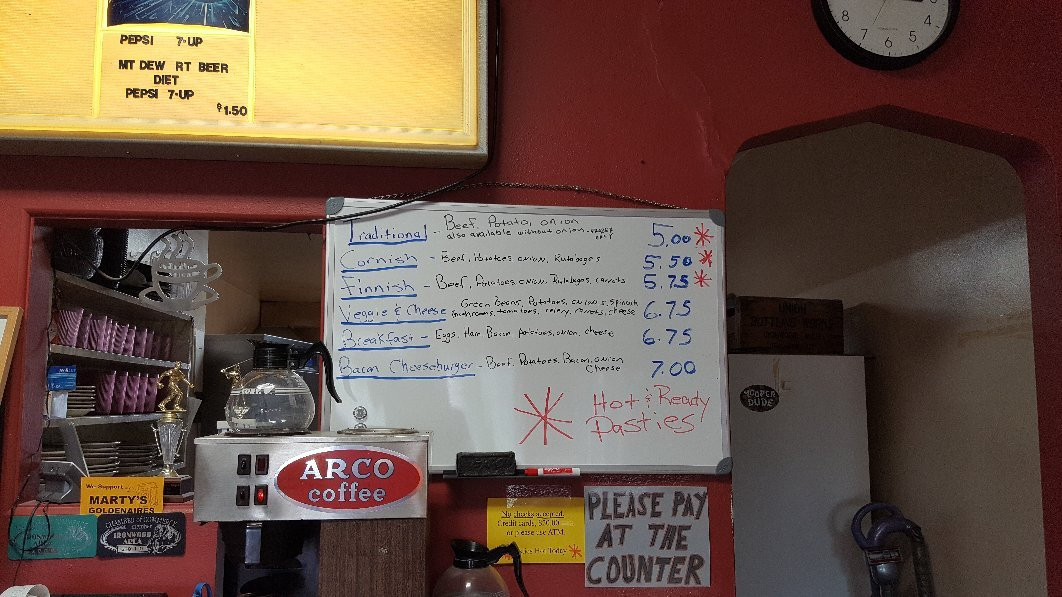 PEPSI 7-UP
MT DEW RT BEER
DIET
PEPSI 7-UP
$1.50
8 7 6 5 4
Traditional - Beef, Potato, onion 5.00 *
also available without onion -
Cornish - Beef, Potatoes, onion, Rutabagas 5.50 *
Finnish - Beef, Potatoes, onion, Rutabagas, carrots 5.75 *
Veggie & Cheese Green Beans, Potatoes, onions, spinach 6.75
mushrooms, tomatoes, celery, carrots, cheese
Breakfast - Eggs, Ham Bacon potatoes, onion, cheese 6.75
Bacon Cheeseburger - Beef, Potatoes, Bacon, onion 7.00
Cheese
* Hot & Ready
Pasties
YOOPER
DUDE
ARCO
coffee
We Support...
MARTY'S
GOLDENAIRES
CHAMBER OF COMMERCE
IRONWOOD
AREA
No checks accepted.
Credit cards, $20.00
or please use ATM
PLEASE PAY
AT THE
COUNTER